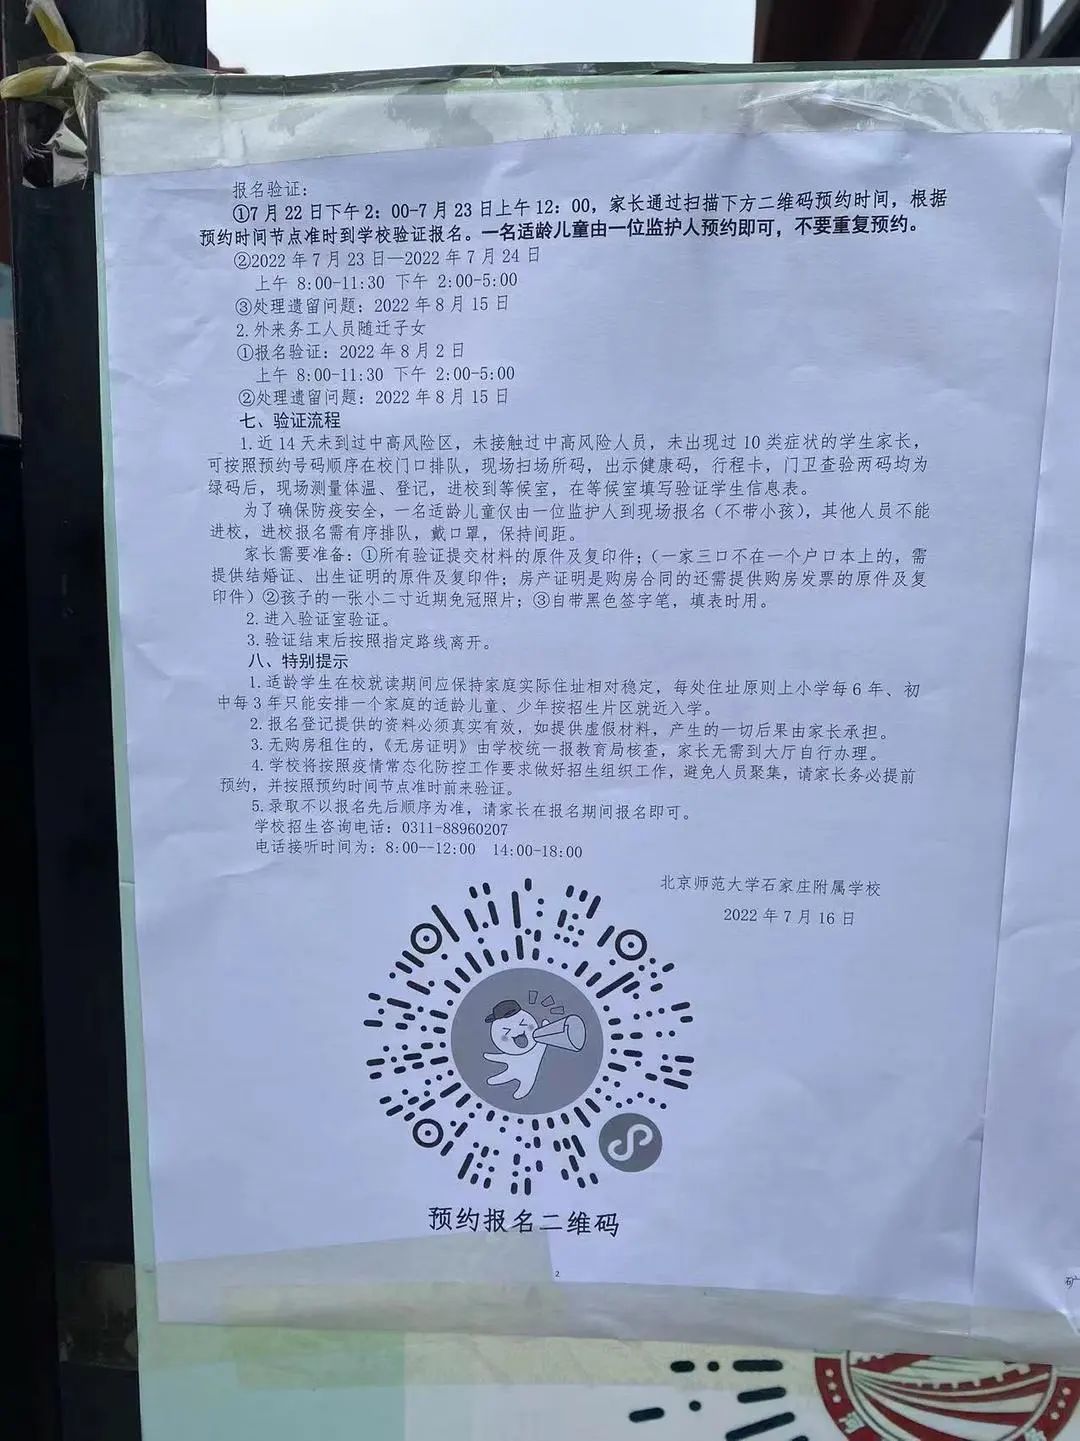 报名验证：
①7月22日下午2：00-7月23日上午12：00，家长通过扫描下方二维码预约时间，根据
预约时间节点准时到学校验证报名。一名适龄儿童由一位监护人预约即可，不要重复预约。
②2022年7月23日—2022年7月24日
上午 8:00-11:30 下午 2:00-5:00
③处理遗留问题：2022年8月15日
2.外来务工人员随迁子女
①报名验证：2022年8月2日
上午 8:00-11:30 下午 2:00-5:00
②处理遗留问题：2022年8月15日
七、验证流程
1.近14天未到过中高风险区，未接触过中高风险人员，未出现过10类症状的学生家长，
可按照预约号码顺序在校门口排队，现场扫场所码，出示健康码，行程卡，门卫查验两码均为
绿码后，现场测量体温、登记，进校到等候室，在等候室填写验证学生信息表。
为了确保防疫安全，一名适龄儿童仅由一位监护人到现场报名（不带小孩），其他人员不能
进校，进校报名需有序排队，戴口罩，保持间距。
家长需要准备：①所有验证提交材料的原件及复印件；（一家三口不在一个户口本上的，需
提供结婚证、出生证明的原件及复印件；房产证明是购房合同的还需提供购房发票的原件及复
印件）②孩子的一张小二寸近期免冠照片；③自带黑色签字笔，填表时用。
2.进入验证室验证。
3.验证结束后按照指定路线离开。
八、特别提示
1.适龄学生在校就读期间应保持家庭实际住址相对稳定，每处住址原则上小学每6年、初
中每3年只能安排一个家庭的适龄儿童、少年按招生片区就近入学。
2.报名登记提供的资料必须真实有效，如提供虚假材料，产生的一切后果由家长承担。
3.无购房租住的，《无房证明》由学校统一报教育局核查，家长无需到大厅自行办理。
4.学校将按照疫情常态化防控工作要求做好招生组织工作，避免人员聚集，请家长务必提前
预约，并按照预约时间节点准时前来验证。
5.录取不以报名先后顺序为准，请家长在报名期间报名即可。
学校招生咨询电话：0311-88960207
电话接听时间为：8:00--12:00 14:00-18:00
北京师范大学石家庄附属学校
2022年7月16日
预约报名二维码
2
矿
河